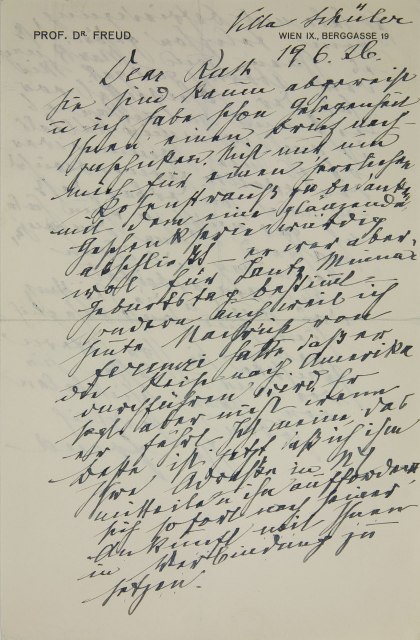 Villa Schüler
PROF. DR. FREUD
WIEN IX., BERGGASSE 19
19.6.26.
Dear Ruth
Sie sind kaum abgereist
u ich habe schon Gelegenheit
Ihnen einen Brief nach-
zuschicken. Nicht nur um
mich für einen herrlichen
Rosenstrauß zu bedanken
mit dem eine glänzende
Geschenkserie würdig
abschließt er war aber
wol für
Geburtstag bestimmt
sondern auch weil ich
heute Nachricht von
Ferenczi hatte, daß er
die Reise nach Amerika
durchführen wird. Er
sagt aber nicht wann
er fährt. Ich meine das
beste ist jetzt daß ich ihm
Ihre Adresse in NY
mitteile u ihn auffordere
sich sofort nach seiner
Ankunft mit Ihnen
in Verbindung zu
setzen.